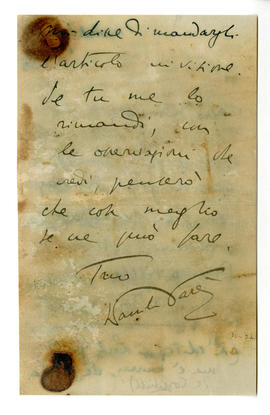 dire di mandargli
l'articolo in visione.
Se tu me lo
rimandi, con
le osservazioni che
credi, penserò
che cosa meglio
se ne può fare.
Tuo